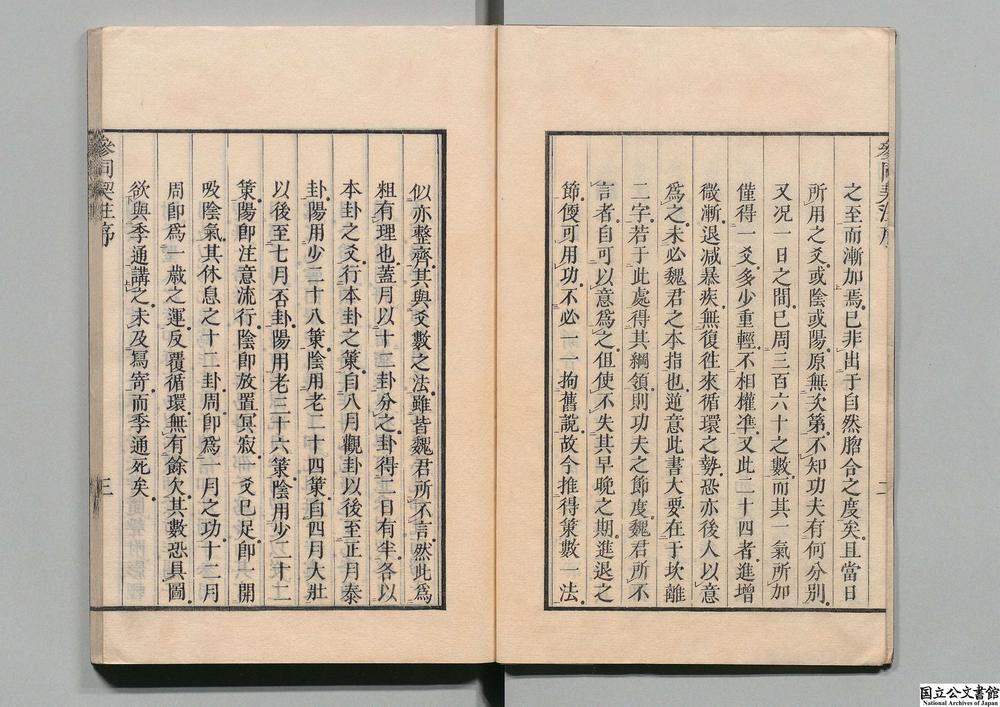 之至而漸加焉已非出于自然脗合之度矣且當日
所用之爻或陰或陽原無次第不知功夫有何分別
又况一日之間已周三百六十之數而其一氣所加
僅得一爻多少重輕不相權準又此二十四者進增
微漸退減暴疾無復徃來循環之勢恐亦後人以意
爲之未必魏君之本指也逆意此書大要在于坎離
二字若于此處得其綱領則功夫之節度魏君所不
言者自可以意爲之但使不失其早晚之期進退之
節便可用功不必一一拘舊說故今推得策數一法
似亦整齊其與爻數之法雖皆魏君所不言然此爲
粗有理也蓋月以十二卦分之卦得二日有半各以
本卦之爻行本卦之策自八月觀卦以後至正月泰
卦陽用少二十八策陰用老二十四策自四月大壯
以後至七月否卦陽用老三十六策陰用少二十二
策陽即注意流行陰即放置冥寂一爻已足即一開
吸陰氣其休息之十二卦周即爲一月之功十二月
周即爲一歲之運反覆循環無有餘欠其數恐具圖
欲與季通講之未及寫寄而季通死矣
參同契註序
三
國立公文書館
National Archives of Japan